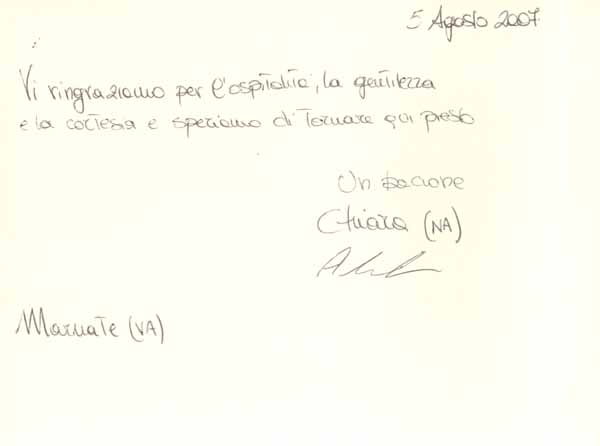 5 Agosto 2007
Vi ringraziamo per l'ospitalità, la gentilezza
e la cortesia e speriamo di Tornare qui presto
Un bacione
Chiara (NA)
Marnate (VA)